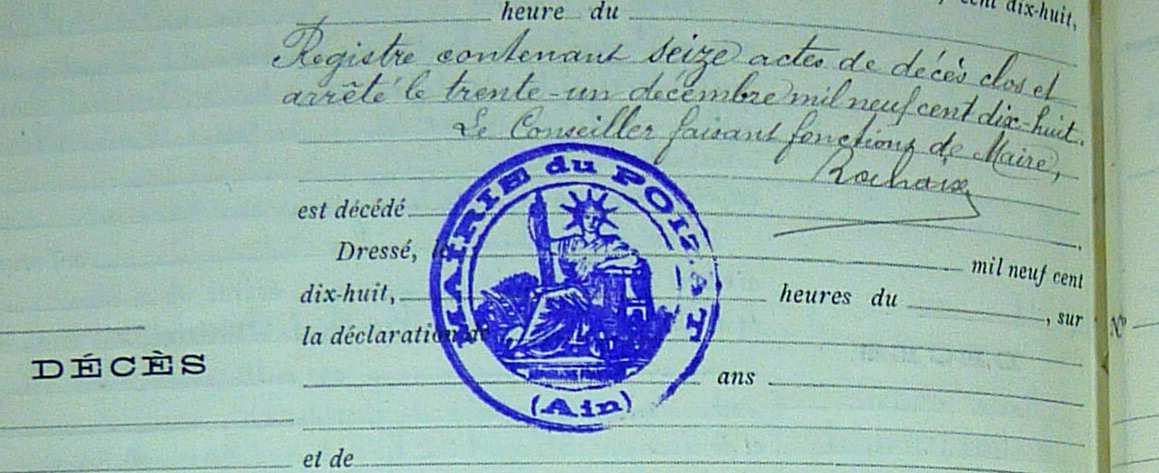 cent dix-huit,
heure du
Registre contenant seize actes de décès clos et
arrêté le trente-un décembre mil neuf cent dix-huit.
Le Conseiller faisant fonctions de Maire,
Rochaix
MAIRIE du POIZAT
(Ain)
est décédé
Dressé, le
mil neuf cent
dix-huit,
heures du
, sur
la déclaration de
DÉCÈS
ans
et de
No